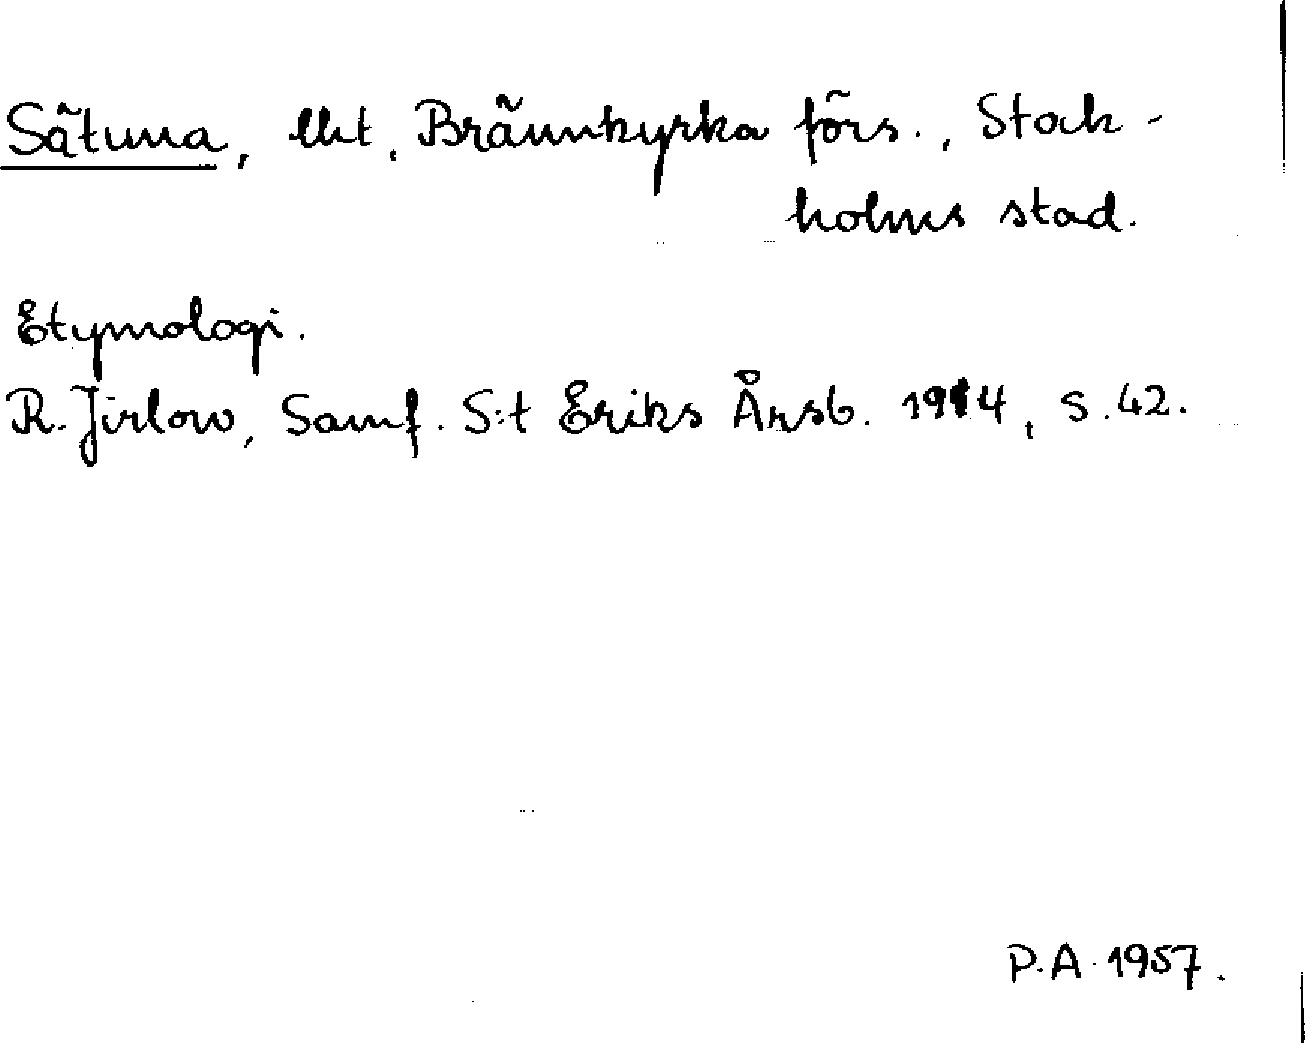 Sätuna, lht, Brännkyrka förs., Stock-
holms stad.
Etymologi.
R. Jirlow, Samf. S:t Eriks Årsb. 1914, s. 42.
P.A. 1957.